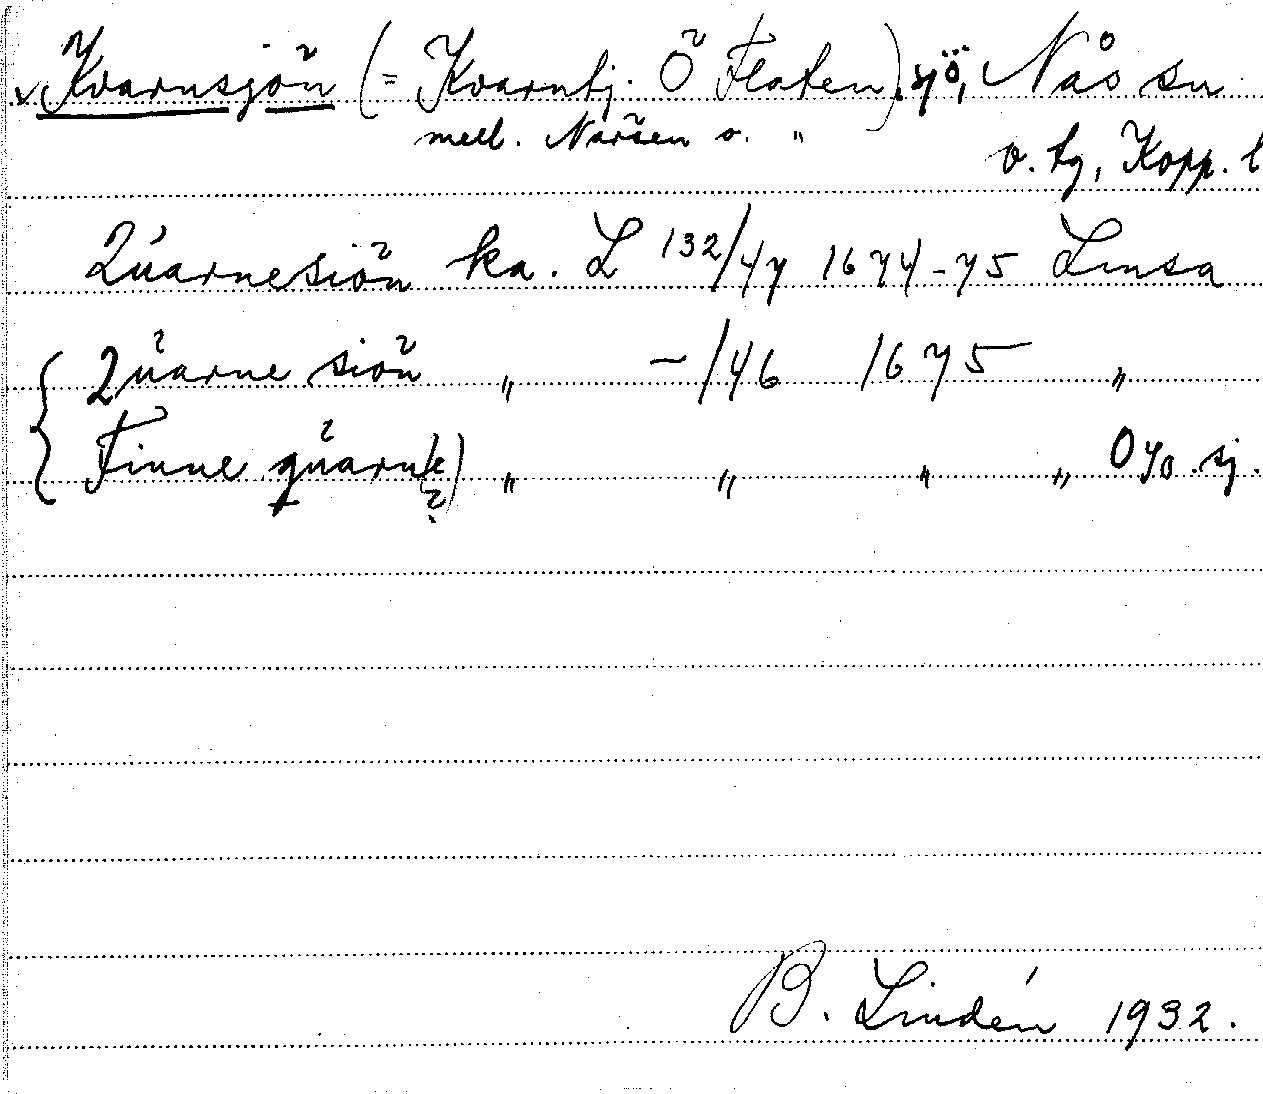 Kvarnsjön (= Kvarntj. Ö Flaten), sjö, Nås sn
mell. Narsen o. "
v. tg, Kopp. l
Qúarnesiön ka. L 132/47 1674-75 Limsa
Qũarne siön " -/46 1675 "
Finne qũarn(k?) " " " " Oyo sj.
B. Lindén 1932.